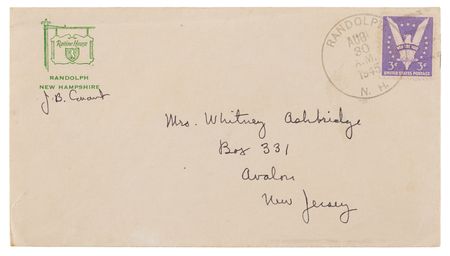 Ravine House
RANDOLPH
NEW HAMPSHIRE
J. B. Conant
RANDOLPH
Aug.
30
A.M.
1945
N. H.
WIN THE WAR
3¢ 3¢
UNITED STATES POSTAGE
Mrs. Whitney Ashbridge
Box 331
Avalon
New Jersey